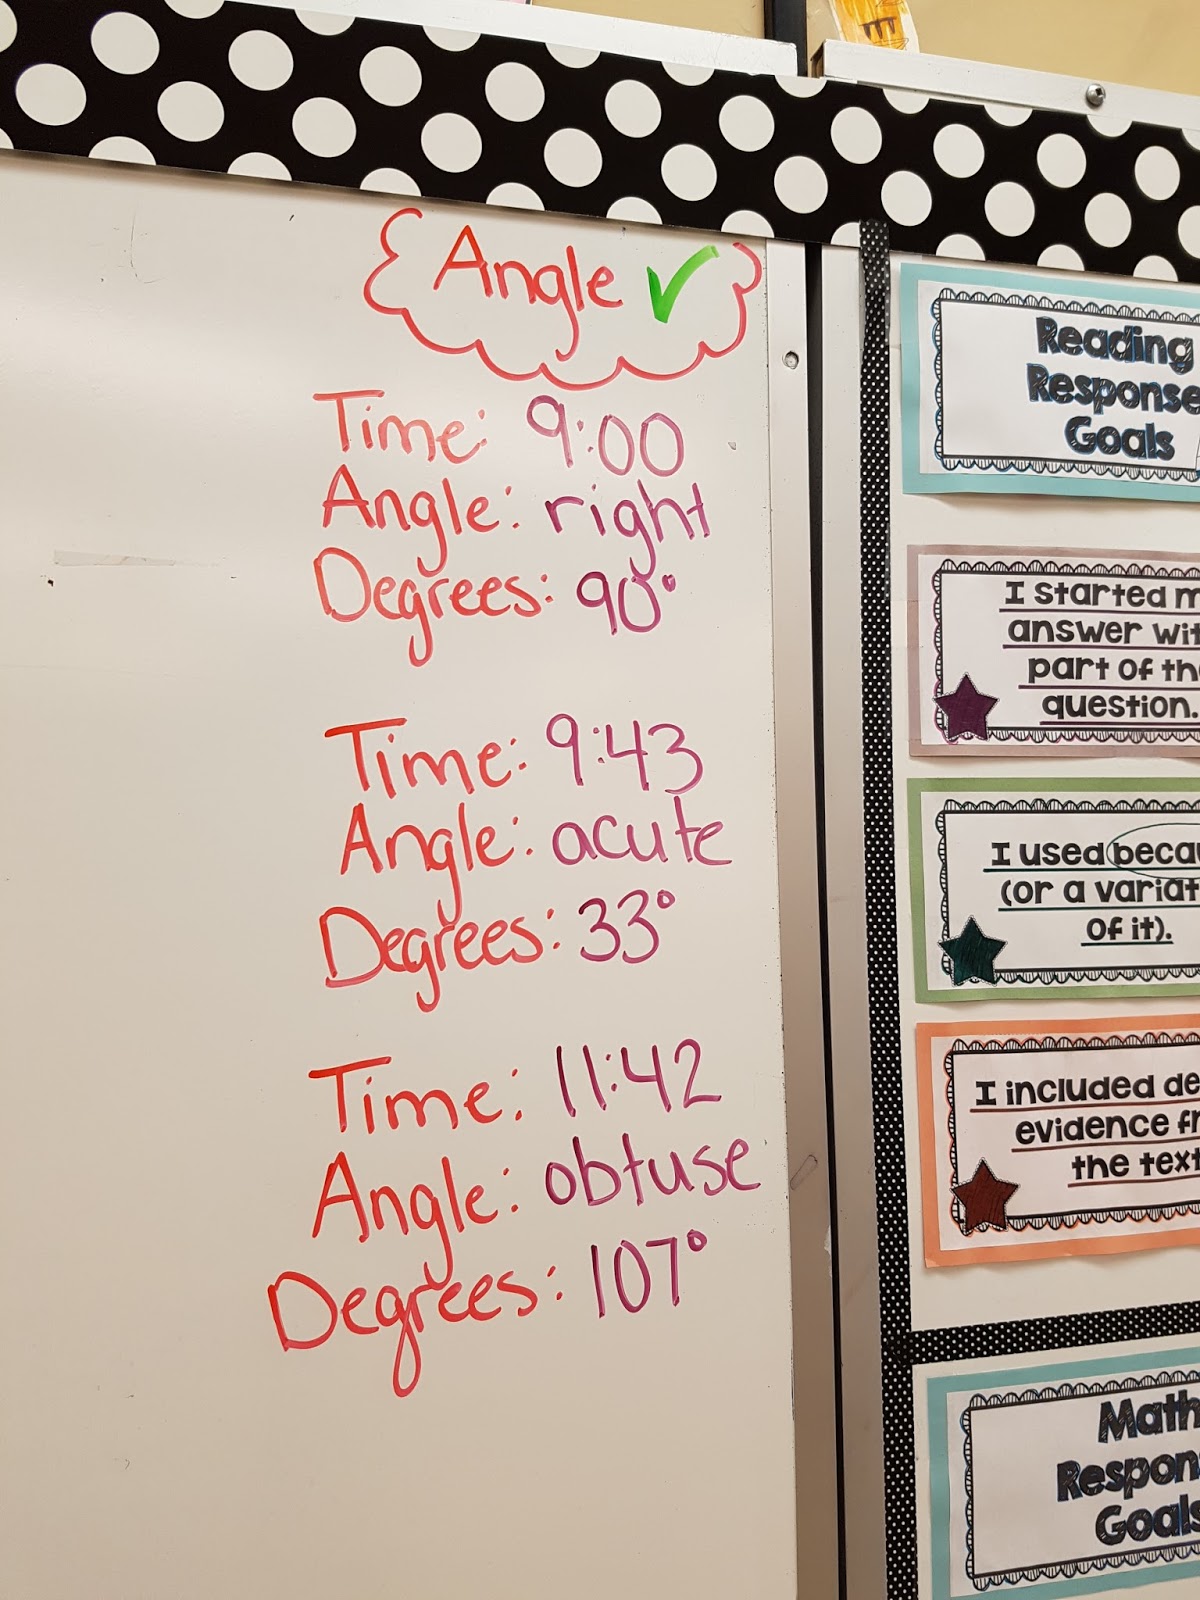 Angle ✓
Time: 9:00
Angle: right
Degrees: 90°
Time: 9:43
Angle: acute
Degrees: 33°
Time: 11:42
Angle: obtuse
Degrees: 107°
Reading
Response
Goals
I started
answer
part of
question.
I used
(or a
of it).
I included
evidence
the text
Math
Goals